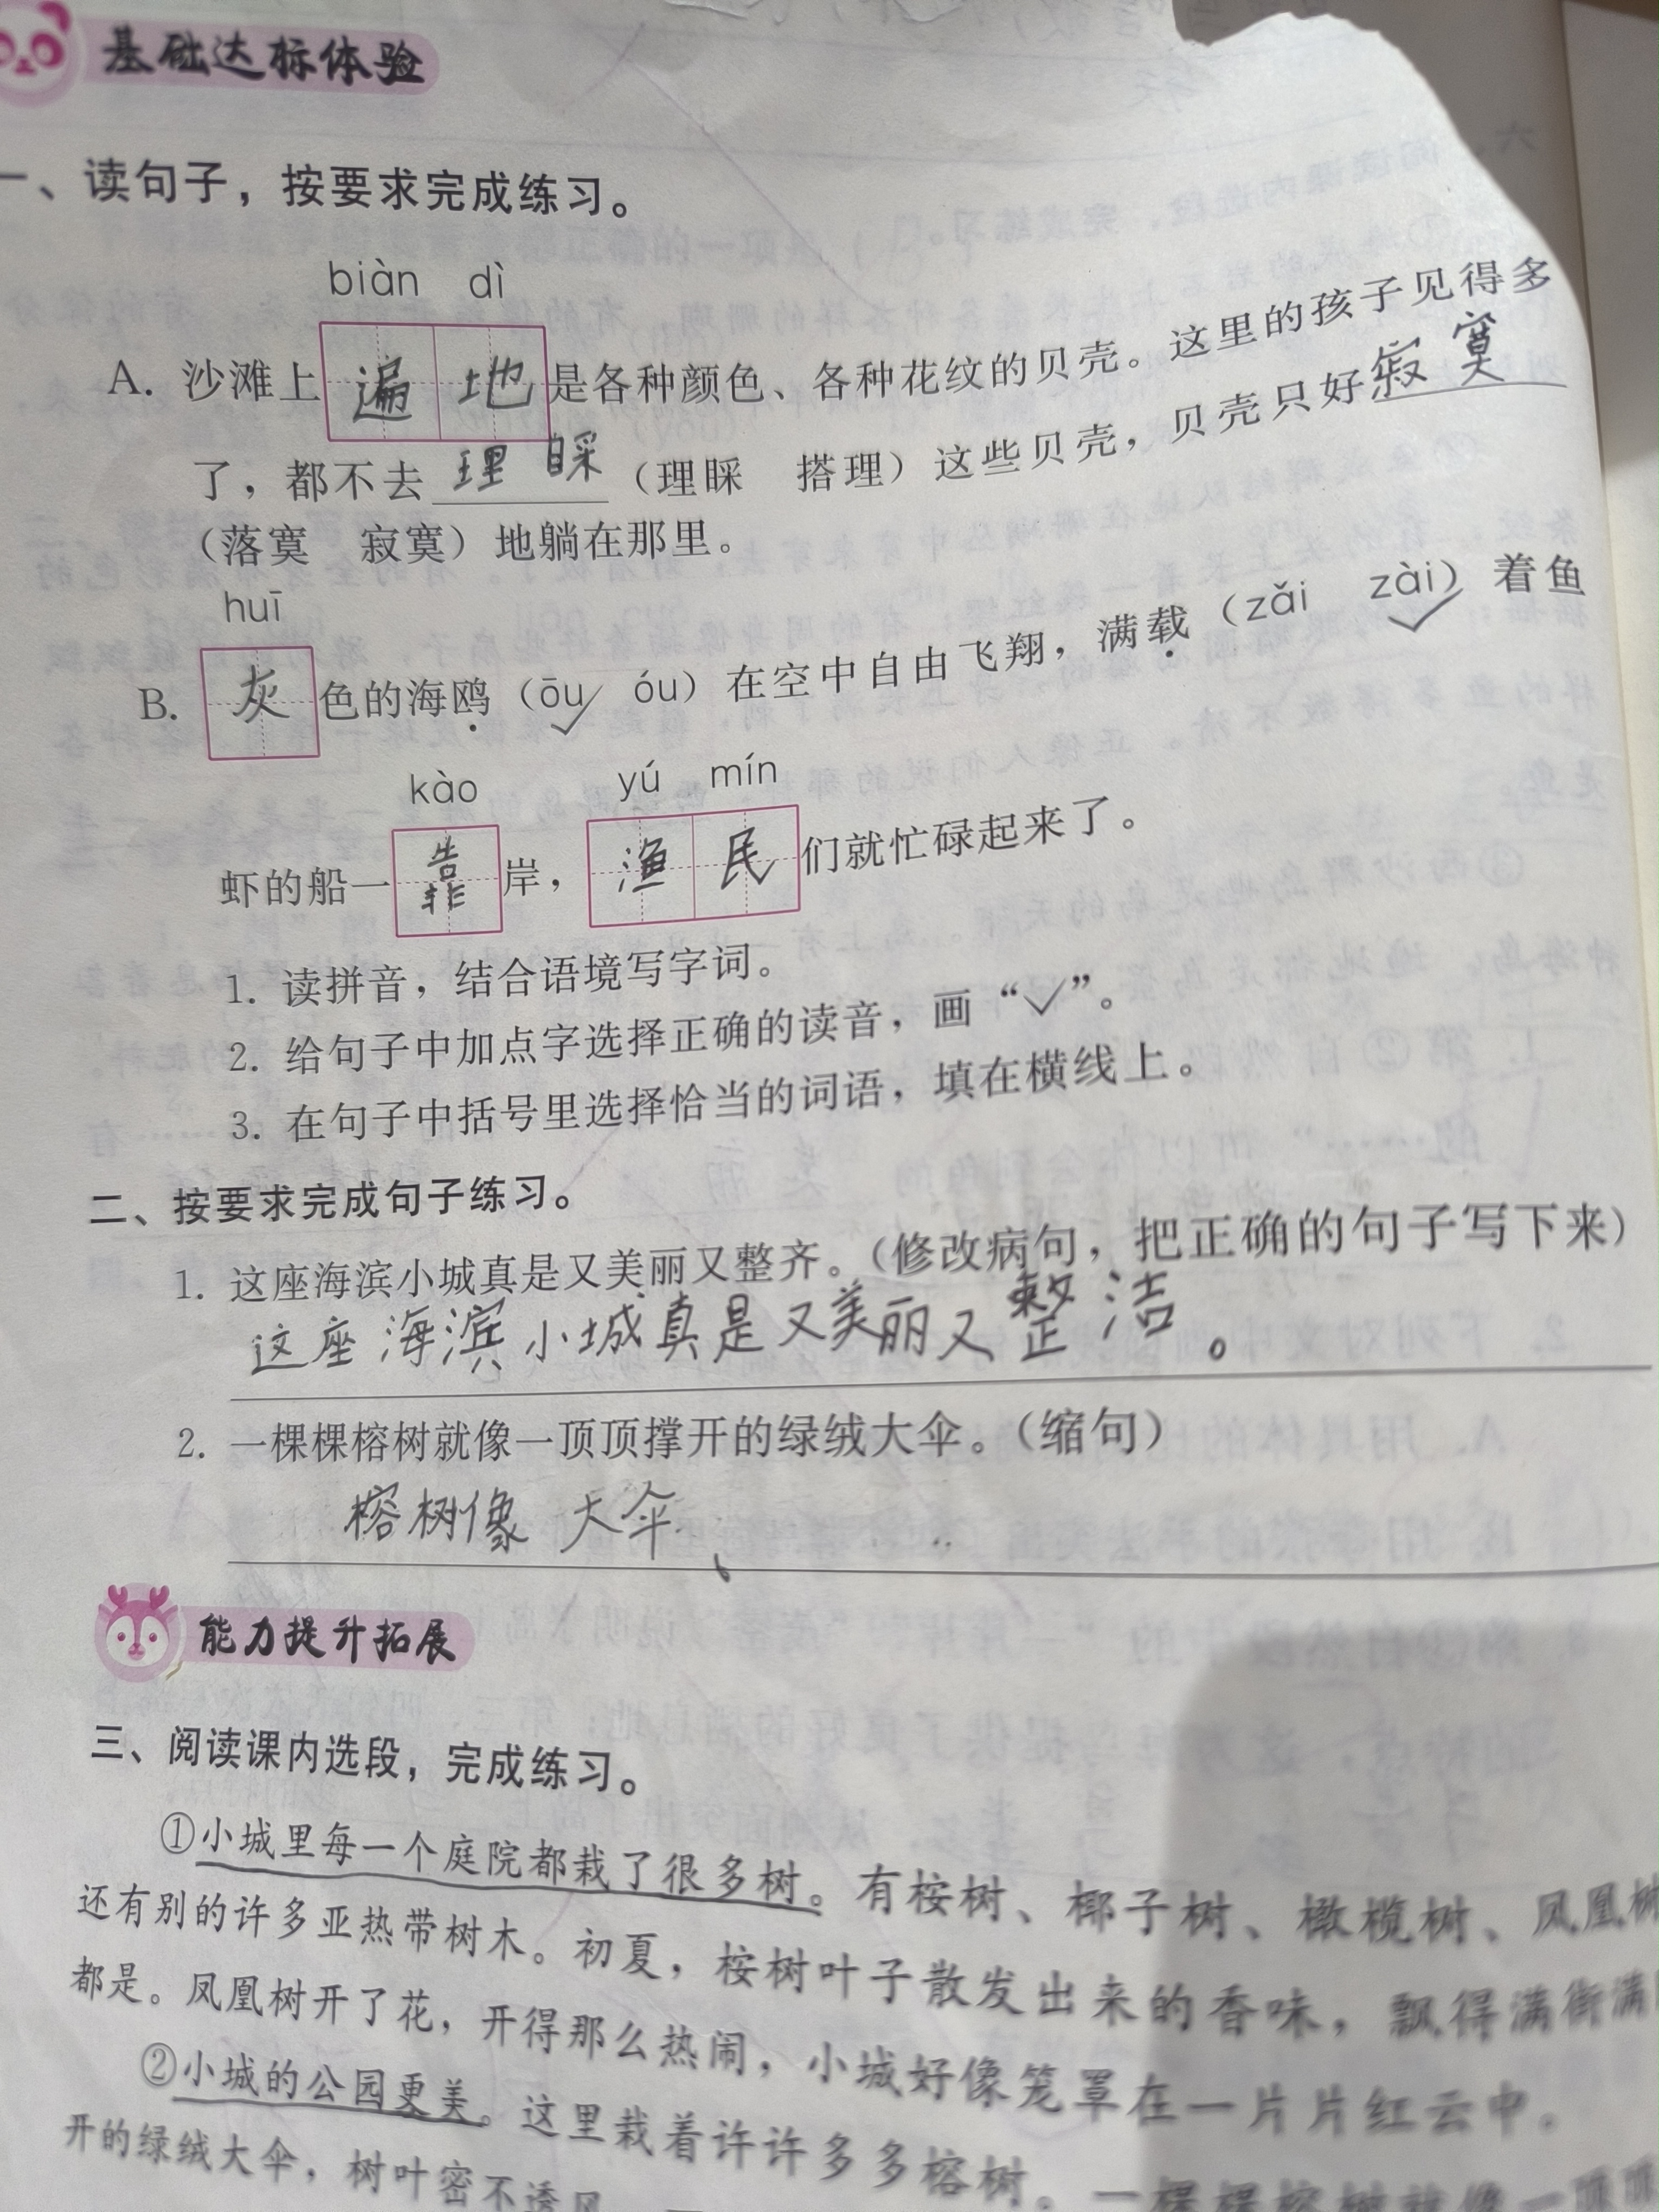 基础达标体验
一、读句子，按要求完成练习。
biàn dì
A. 沙滩上遍地是各种颜色、各种花纹的贝壳。这里的孩子见得多
了，都不去理睬（理睬 搭理）这些贝壳，贝壳只好寂寞
（落寞 寂寞）地躺在那里。
huī
B. 灰色的海鸥（ōu✓ óu）在空中自由飞翔，满载（zǎi zài✓）着鱼
kào yú mín
虾的船一靠岸，渔民们就忙碌起来了。
1. 读拼音，结合语境写字词。
2. 给句子中加点字选择正确的读音，画“✓”。
3. 在句子中括号里选择恰当的词语，填在横线上。
二、按要求完成句子练习。
1. 这座海滨小城真是又美丽又整齐。（修改病句，把正确的句子写下来）
这座海滨小城真是又美丽又整洁。
2. 一棵棵榕树就像一顶顶撑开的绿绒大伞。（缩句）
榕树像大伞。
能力提升拓展
三、阅读课内选段，完成练习。
①小城里每一个庭院都栽了很多树。有桉树、椰子树、橄榄树、凤凰树
还有别的许多亚热带树木。初夏，桉树叶子散发出来的香味，飘得满街满
都是。凤凰树开了花，开得那么热闹，小城好像笼罩在一片片红云中。
②小城的公园更美。这里栽着许许多多榕树。一棵棵榕树就像一顶顶
开的绿绒大伞，树叶密不透风